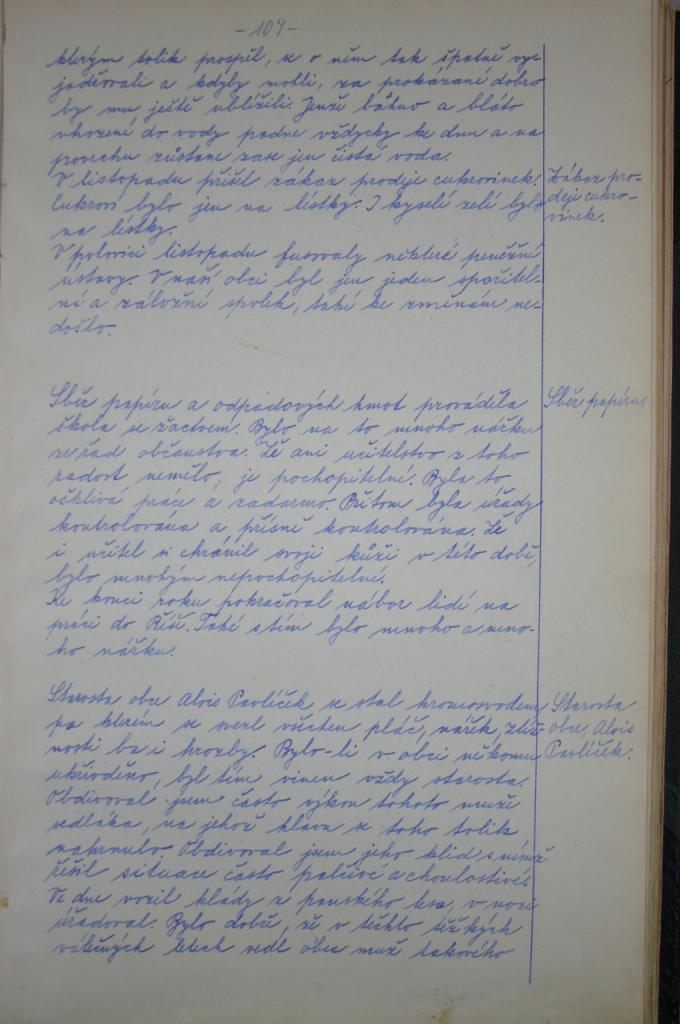 -107-
kterým tolik prospěl, se o něm tak špatně vy-
jadřovali a kdyby mohli, za prokázané dobro
by mu ještě ublížili. Jenže bátno a bláto
vhozené do vody padne vždycky ke dnu a na
povrchu zůstane zase jen čistá voda.
V listopadu přišel zákaz prodeje cukrovinek.
Cukroví bylo jen na lístky. I kyselé zelí bylo
na lístky.
Zákaz pro-
deje cukro-
vinek.
V polovici listopadu fusovaly některé peněžní
ústavy. V naší obci byl jen jeden spořitel-
ní a záložní spolek, také ke změnám ne-
došlo.
Sběr papíru a odpadových hmot prováděla
škola se žactvem. Bylo na to mnoho nářku
ze řad občanstva. Že ani učitelstvo z toho
radost nemělo, je pochopitelné. Byla to
ošklivá práce a zadarmo. Přitom byla úřady
kontrolována a přísně kontrolována. Že
i učitel si chránil svoji kůži v této době,
bylo mnohým nepochopitelné.
Sběr papíru.
Ke konci roku pokračoval nábor lidí na
práci do Říše. Také s tím bylo mnoho a mno-
ho nářku.
Starosta obce Alois Pavlíček se stal hromosvodem
po kterém se svezl všechen pláč, nářek, stíž-
nosti ba i hrozby. Bylo-li v obci někomu
ukřivděno, byl tím vinen vždy starosta.
Obdivoval jsem často výkon tohoto muže
sedláka, na jehož hlavu se toho tolik
nahrnulo. Obdivoval jsem jeho klid s nímž
řešil situace často palčivé a choulostivé.
Ve dne vozil klády z panského lesa, v noci
úřadoval. Bylo dobře, že v těchto těžkých
válečných letech vedl obec muž takového
Starosta
obce, Alois
Pavlíček.